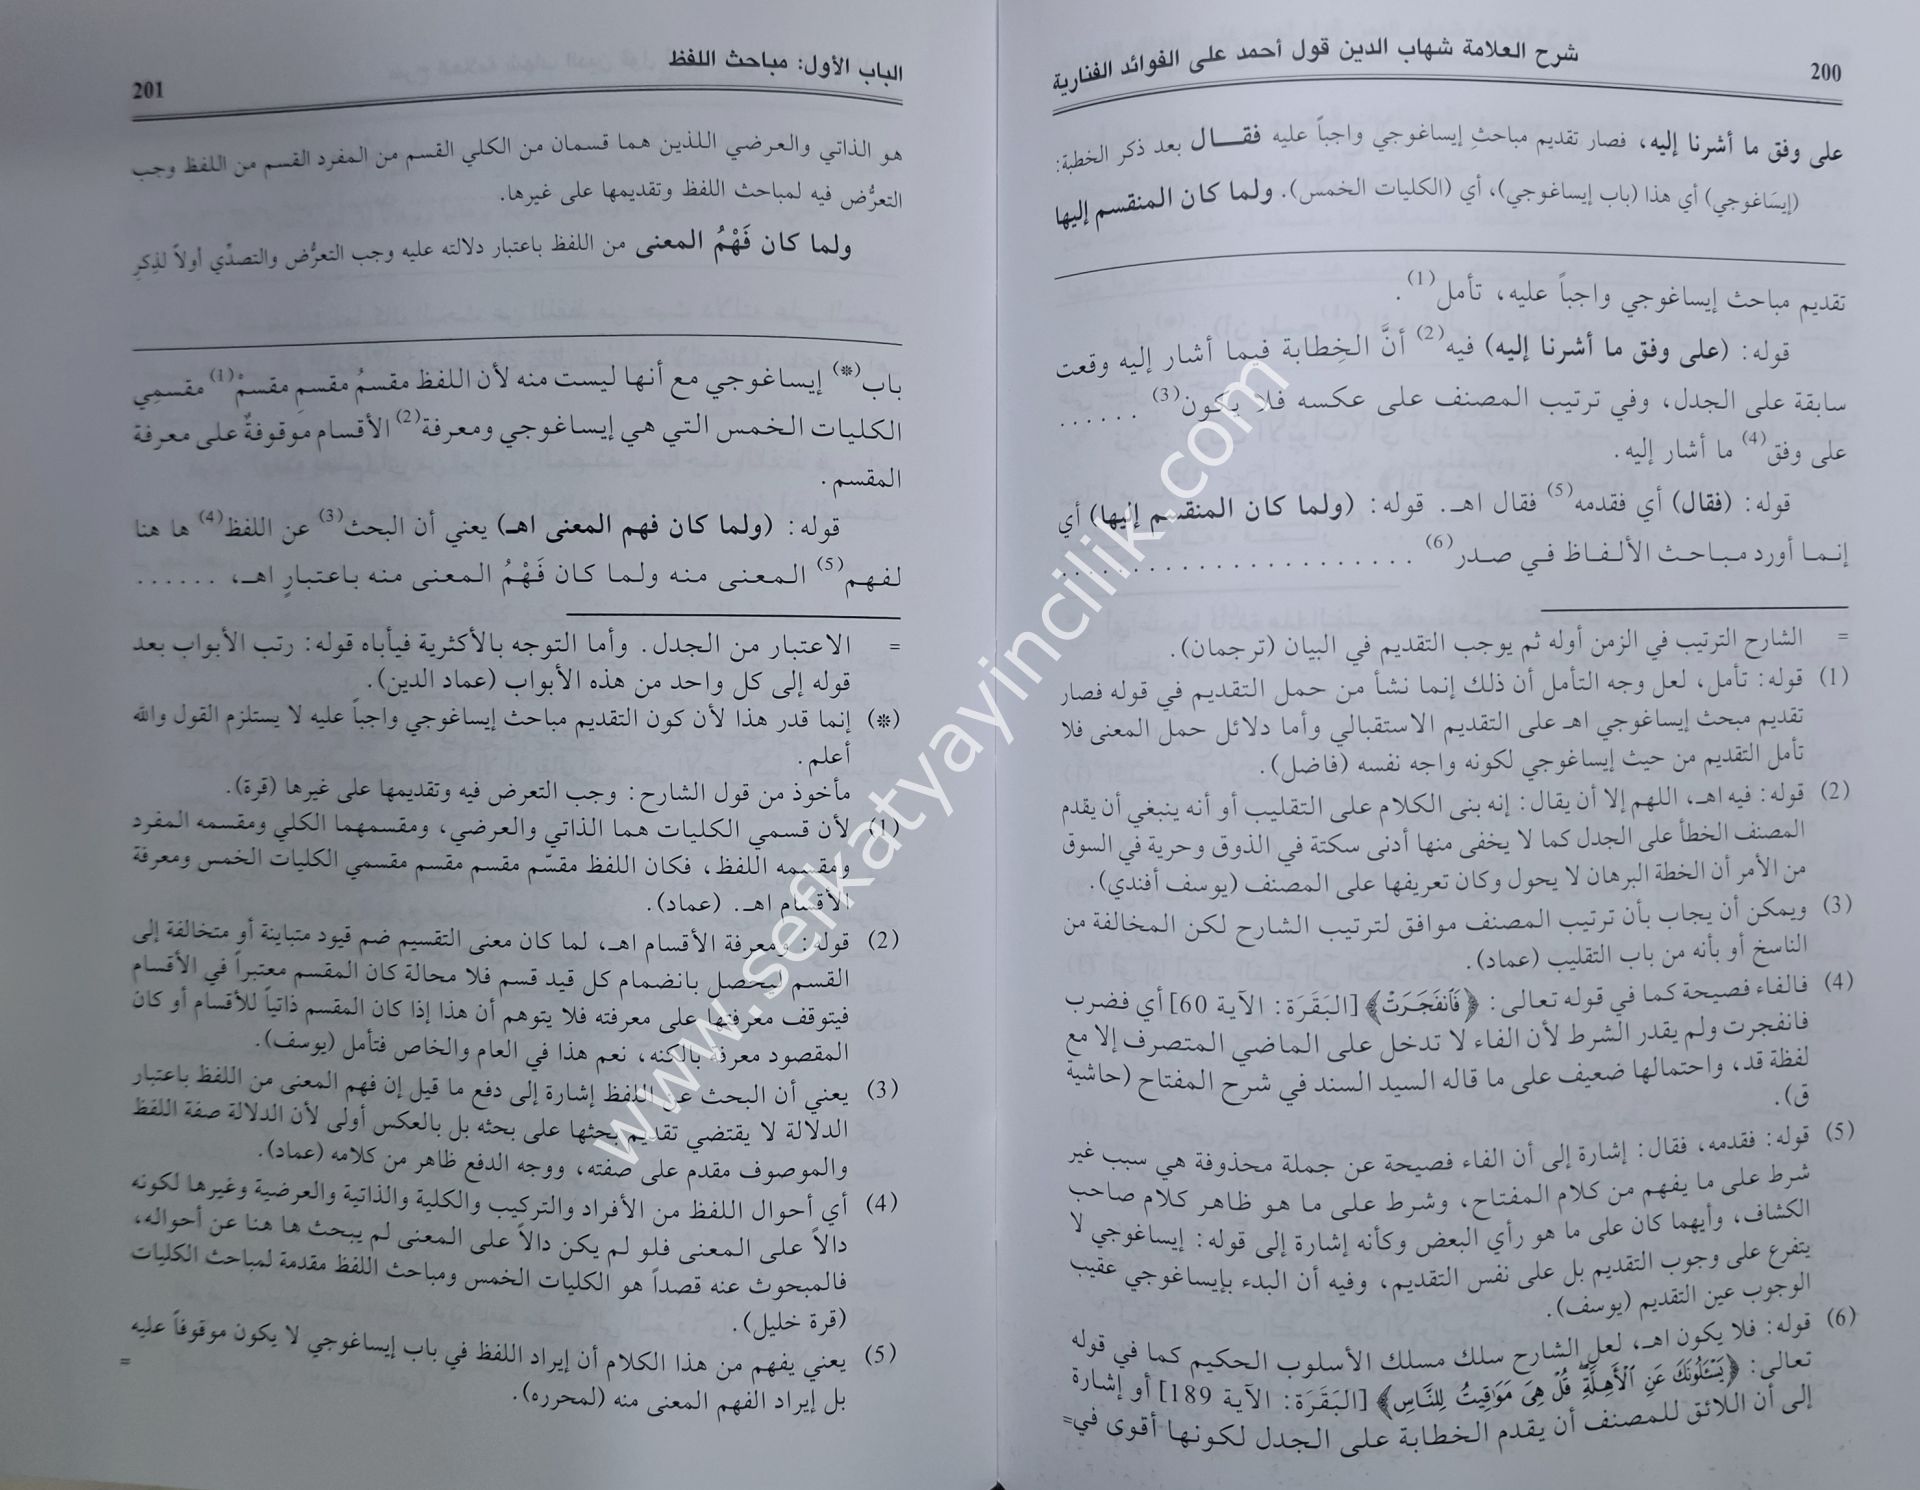 200
شرح العلامة شهاب الدين قول أحمد على الفوائد الفنارية
على وفق ما أشرنا إليه، فصار تقديم مباحثِ إيساغوجي واجباً عليه فقـــال بعد ذكر الخطبة:
(إيسَاغوجي) أي هذا (باب إيساغوجي)، أي (الكليات الخمس). ولما كان المنقسم إليها
تقديم مباحث إيساغوجي واجباً عليه، تأمل(1).
قوله: (على وفق ما أشرنا إليه) فيه(2) أنَّ الخِطابة فيما أشار إليه وقعت
سابقة على الجدل، وفي ترتيب المصنف على عكسه فلا يكون(3) .......
على وفق(4) ما أشار إليه.
قوله: (فقال) أي فقدمه(5) فقال اهـ. قوله: (ولما كان المنقسم إليها) أي
إنما أورد مباحث الألفاظ في صدر(6) ......................
= الشارح الترتيب في الزمن أوله ثم يوجب التقديم في البيان (ترجمان).
(1) قوله: تأمل، لعل وجه التأمل أن ذلك إنما نشأ من حمل التقديم في قوله فصار
تقديم مبحث إيساغوجي اهـ على التقديم الاستقبالي وأما دلائل حمل المعنى فلا
تأمل التقديم من حيث إيساغوجي لكونه واجه نفسه (فاضل).
(2) قوله: فيه اهـ، اللهم إلا أن يقال: إنه بنى الكلام على التقليب أو أنه ينبغي أن يقدم
المصنف الخطأ على الجدل كما لا يخفى منها أدنى سكتة في الذوق وحرية في السوق
من الأمر أن الخطة البرهان لا يحول وكان تعريفها على المصنف (يوسف أفندي).
(3) ويمكن أن يجاب بأن ترتيب المصنف موافق لترتيب الشارح لكن المخالفة من
الناسخ أو بأنه من باب التقليب (عماد).
(4) فالفاء فصيحة كما في قوله تعالى: ﴿فَٱنفَجَرَتْ﴾ [البَقَرَة: الآية 60] أي فضرب
فانفجرت ولم يقدر الشرط لأن الفاء لا تدخل على الماضي المتصرف إلا مع
لفظة قد، واحتمالها ضعيف على ما قاله السيد السند في شرح المفتاح (حاشية
ق).
(5) قوله: فقدمه، فقال: إشارة إلى أن الفاء فصيحة عن جملة محذوفة هي سبب غير
شرط على ما يفهم من كلام المفتاح، وشرط على ما هو ظاهر كلام صاحب
الكشاف، وأيهما كان على ما هو رأي البعض وكأنه إشارة إلى قوله: إيساغوجي لا
يتفرع على وجوب التقديم بل على نفس التقديم، وفيه أن البدء بإيساغوجي عقيب
الوجوب عين التقديم (يوسف).
(6) قوله: فلا يكون اهـ، لعل الشارح سلك مسلك الأسلوب الحكيم كما في قوله
تعالى: ﴿يَسْـَٔلُونَكَ عَنِ ٱلْأَهِلَّةِۖ قُلْ هِىَ مَوَٰقِيتُ لِلنَّاسِ﴾ [البَقَرَة: الآية 189] أو إشارة
إلى أن اللائق للمصنف أن يقدم الخطابة على الجدل لكونها أقوى في=
الباب الأول: مباحث اللفظ
201
هو الذاتي والعرضي اللذين هما قسمان من الكلي القسم من المفرد القسم من اللفظ وجب
التعرُّض فيه لمباحث اللفظ وتقديمها على غيرها.
ولما كان فَهْمُ المعنى من اللفظ باعتبار دلالته عليه وجب التعرُّض والتصدِّي أولاً لذِكرِ
باب(*) إيساغوجي مع أنها ليست منه لأن اللفظ مقسمُ مقسمِ مقسمْ(1) مقسمِي
الكليات الخمس التي هي إيساغوجي ومعرفة(2) الأقسام موقوفةٌ على معرفة
المقسم.
قوله: (ولما كان فهم المعنى اهـ) يعني أن البحث(3) عن اللفظ(4) ها هنا
لفهم(5) المعنى منه ولما كان فَهْمُ المعنى منه باعتبارٍ اهـ، ......
= الاعتبار من الجدل. وأما التوجه بالأكثرية فيأباه قوله: رتب الأبواب بعد
قوله إلى كل واحد من هذه الأبواب (عماد الدين).
(*) إنما قدر هذا لأن كون التقديم مباحث إيساغوجي واجباً عليه لا يستلزم القول والله
أعلم.
مأخوذ من قول الشارح: وجب التعرض فيه وتقديمها على غيرها (قرة).
(1) لأن قسمي الكليات هما الذاتي والعرضي، ومقسمهما الكلي ومقسمه المفرد
ومقسمه اللفظ، فكان اللفظ مقسّم مقسم مقسم مقسمي الكليات الخمس ومعرفة
الأقسام اهـ. (عماد).
(2) قوله: ومعرفة الأقسام اهـ، لما كان معنى التقسيم ضم قيود متباينة أو متخالفة إلى
القسم ليحصل بانضمام كل قيد قسم فلا محالة كان المقسم معتبراً في الأقسام
فيتوقف معرفتها على معرفته فلا يتوهم أن هذا إذا كان المقسم ذاتياً للأقسام أو كان
المقصود معرفة بالكنه، نعم هذا في العام والخاص فتأمل (يوسف).
(3) يعني أن البحث عن اللفظ إشارة إلى دفع ما قيل إن فهم المعنى من اللفظ باعتبار
الدلالة لا يقتضي تقديم بحثها على بحثه بل بالعكس أولى لأن الدلالة صفة اللفظ
والموصوف مقدم على صفته، ووجه الدفع ظاهر من كلامه (عماد).
(4) أي أحوال اللفظ من الأفراد والتركيب والكلية والذاتية والعرضية وغيرها لكونه
دالاً على المعنى فلو لم يكن دالاً على المعنى لم يبحث ها هنا عن أحواله،
فالمبحوث عنه قصداً هو الكليات الخمس ومباحث اللفظ مقدمة لمباحث الكليات
(قرة خليل).
(5) يعني يفهم من هذا الكلام أن إيراد اللفظ في باب إيساغوجي لا يكون موقوفاً عليه
بل إيراد الفهم المعنى منه (لمحرره). =
www.sefkatyayincilik.com